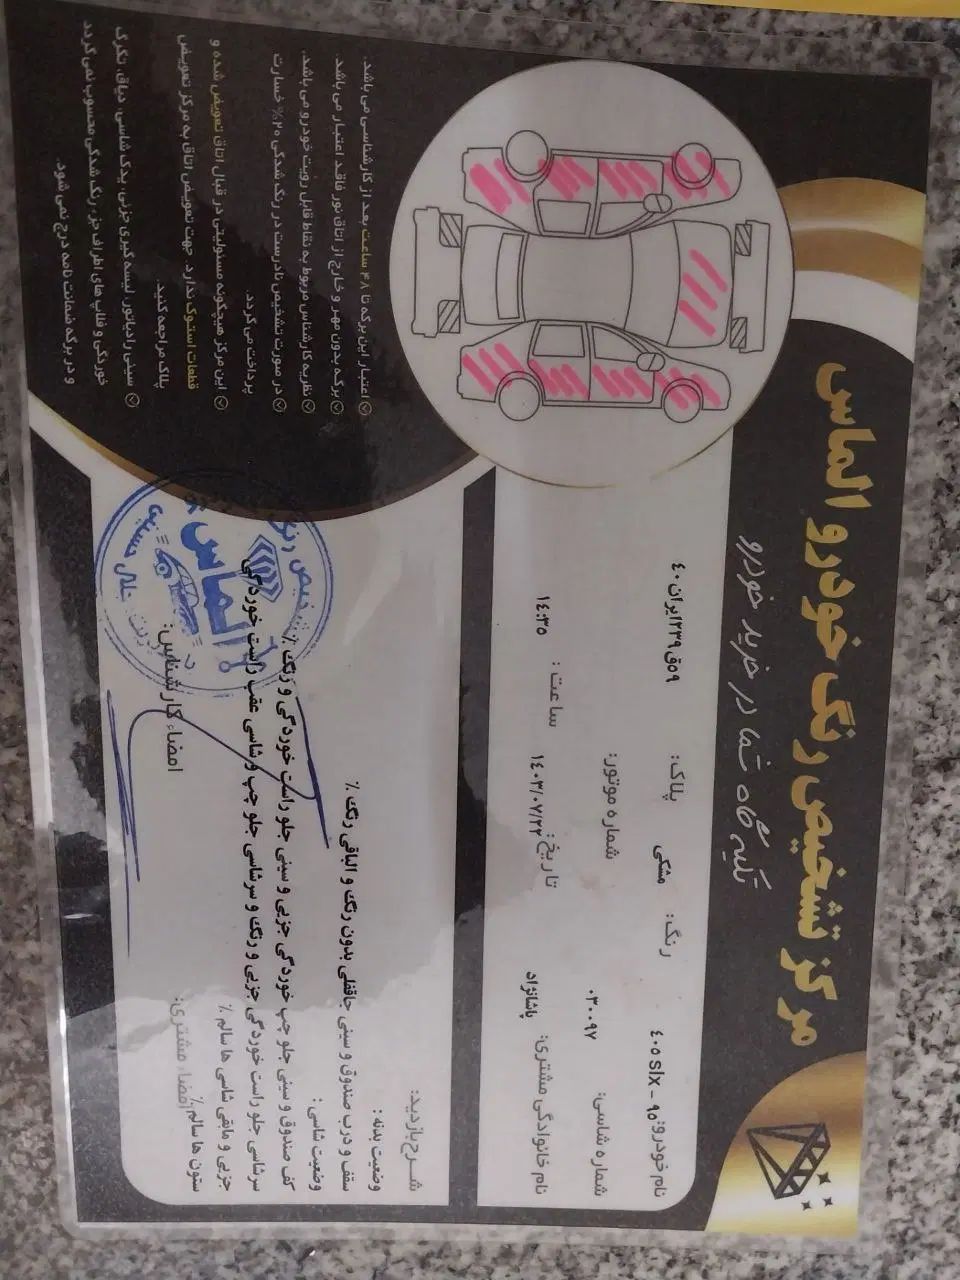 مرکز تشخیص رنگ خودرو الماس
تکیه گاه شما در خرید خودرو
نام خودرو: ۴۰۵ slx - ۹۵ رنگ: مشکی پلاک: ۵۹ق۲۳۹ایران۴۰
شماره شاسی: ۰۳۰۰۹۷ شماره موتور:
نام خانوادگی مشتری: پاشانژاد تاریخ: ۱۴۰۳/۰۷/۲۲ ساعت: ۱۴:۳۵
شرح بازدید:
وضعیت بدنه:
سقف و درب صندوق و سینی جاقفلی بدون رنگ و الباقی رنگ ٪
وضعیت شاسی:
کف صندوق و سینی جلو چپ خوردگی جزیی و سینی جلو راست خوردگی و رنگ ٪
سرشاسی جلو راست خوردگی جزیی و رنگ و سرشاسی جلو چپ و شاسی عقب راست خوردگی
جزیی و مابقی شاسی ها سالم ٪
ستون ها سالم ٪
امضاء مشتری: امضاء کارشناس:
اعتبار این برگه تا ۴۸ ساعت بعد از کارشناسی می باشد.
برگه بدون مهر و خارج از اتاق نور فاقد اعتبار می باشد
نظریه کارشناس مربوط به نقاط قابل رویت خودرو می باشد.
در صورت تشخیص نادرست در رنگ شدگی ۲۰٪ خسارت
پرداخت می گردد.
این مرکز هیچگونه مسئولیتی در قبال اتاق تعویض شده و
قطعات استوک ندارد. جهت تعویض اتاق به مرکز تعویض
پلاک مراجعه کنید.
سینی رادیاتور، لیسه گیری جزئی، یدک شاسی، دیاق، تگرگ
خوردگی و قالب های اطراف جزء رنگ شدگی محسوب نمی گردد
و در برگه ضمانت نامه درج نمی شود.
الماس